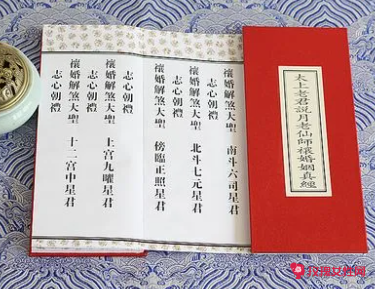 太上老君說月老仙師禳婚姻真經
禳婚解煞大聖 南斗六司星君
志心朝禮
禳婚解煞大聖 北斗七元星君
志心朝禮
禳婚解煞大聖 傍臨正照星君
志心朝禮
禳婚解煞大聖 上宮九曜星君
志心朝禮
禳婚解煞大聖 十二宮中星君
志心朝禮